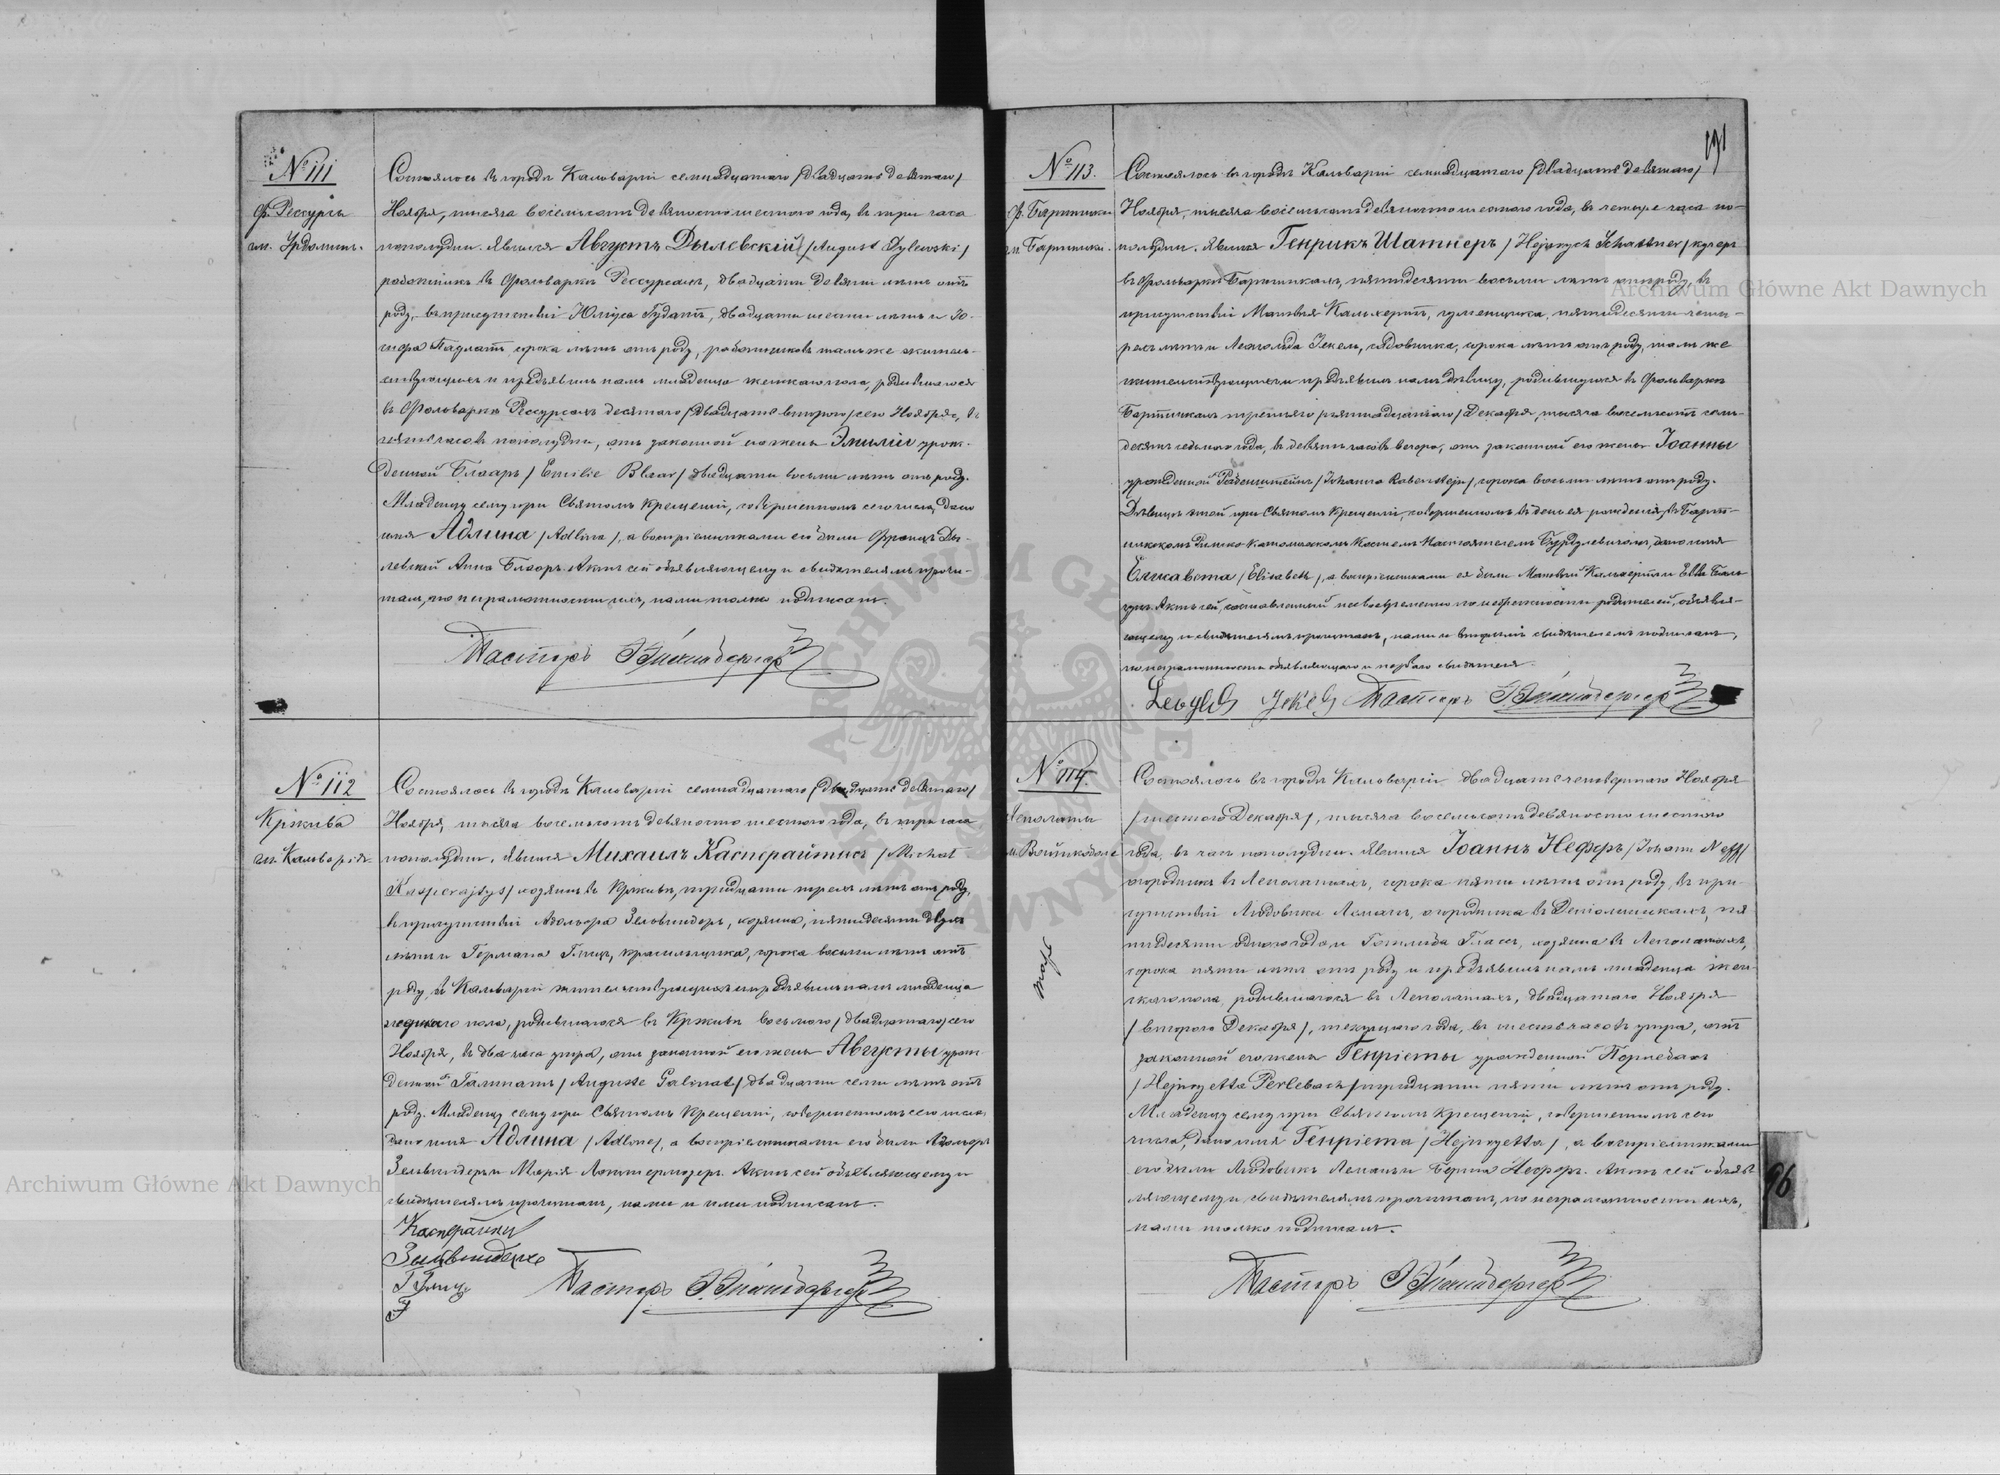 № 111
ф. Рессурсъ
гм. Урдоминъ.
Состоялось въ городѣ Кальваріи семнадцатаго /двадцать девятаго/
Ноября, тысяча восемьсотъ девяносто шестого года, въ три часа
пополудни. Явился Августъ Дылевскій /August Dylewski/
работникъ въ Фольваркѣ Рессурсахъ, двадцати девяти лѣтъ отъ
роду, въ присутствіи Юлiуса Гудатъ, двадцати шести лѣтъ и
сорока лѣтъ отъ роду, работниковъ тамъ же житель-
ствующихъ и предъявилъ намъ младенца женскаго пола, родившагося
въ Фольваркѣ Рессурсахъ десятаго /двадцать второго/ сего Ноября, въ
часовъ пополудни, отъ законной его жены Эмиліи урож-
денной Блааръ /Emilie Blaar/ двадцати восьми лѣтъ отъ роду.
Младенцу сему при Святомъ Крещеніи, совершенномъ сего числа, дано
имя Адлина /Adlina/, а воспріемниками его были Францъ Ды-
левскій Анна Блааръ. Актъ сей объявляющему и свидѣтелямъ прочи-
танъ, по неграмотности ихъ, нами только подписанъ.
Пасторъ
№ 112
Кржива
гм. Кальварія
Состоялось въ городѣ Кальваріи семнадцатаго /двадцать девятаго/
Ноября, тысяча восемьсотъ девяносто шестого года, въ три часа
пополудни. Явился Михаилъ Касперайтисъ /Michał
Kasperajtys/ хозяинъ въ Крживѣ, тридцати трехъ лѣтъ отъ роду,
въ присутствіи Адольфа Зельвиндеръ, хозяина, пятидесяти двухъ
лѣтъ и Германа Глицъ, красильщика, сорока восьми лѣтъ отъ
роду, въ Кальваріи жительствующихъ и предъявилъ намъ младенца
женскаго пола, родившагося въ Крживѣ восьмого /двадцатаго/ сего
Ноября, въ два часа утра, отъ законной его жены Августы урож-
денной Галинатъ /Auguste Galinat/ двадцати семи лѣтъ отъ
роду. Младенцу сему при Святомъ Крещеніи, совершенномъ сего числа,
дано имя Адлина /Adline/, а воспріемниками его были Адольфъ
Зельвиндеръ и Марія. Актъ сей объявляющему и
свидѣтелямъ прочитанъ, нами и ими подписанъ.
Пасторъ
191
№ 113.
ф. Бартники
гм. Бартники.
Состоялось въ городѣ Кальваріи семнадцатаго /двадцать девятаго/
Ноября, тысяча восемьсотъ девяносто шестого года, въ четыре часа по-
полудни. Явился Генрикъ Шатнеръ /Hejnrych Schattner/ кучеръ
въ Фольваркѣ Бартникахъ, пятидесяти восьми лѣтъ отъ роду, въ
присутствіи Матвѣя Кальхертъ, гуменщика, пятидесяти четы-
рехъ лѣтъ и Леопольда Іекель, садовника, сорока лѣтъ отъ роду, тамъ же
жительствующихъ и предъявилъ намъ дѣвицу, родившуюся въ Фольваркѣ
Бартникахъ третьяго /пятнадцатаго/ Декабря, тысяча восемьсотъ семь-
десятъ седьмого года, въ девять часовъ вечера, отъ законной его жены Іоанны
урожденной Рабенштейнъ /Johanna Rabenstejn/, сорока восьми лѣтъ отъ роду.
Дѣвицѣ этой при Святомъ Крещеніи, совершенномъ въ день ея рожденія, въ Барт-
никскомъ Римско-Католическомъ Костелѣ Настоятелемъ, дано имя
Елисавета /Elisabeth/, а воспріемниками ея были Матвѣй Кальхертъ и Ева
Актъ сей, составленный несвоевременно по небрежности родителей, объявля-
ющему и свидѣтелямъ прочитанъ, нами и вторымъ свидѣтелемъ подписанъ,
по неграмотности объявляющаго и перваго свидѣтеля.
Пасторъ
№ 114.
Состоялось въ городѣ Кальваріи двадцать четвертаго Ноября
/шестого Декабря/, тысяча восемьсотъ девяносто шестого
года, въ часъ пополудни. Явился Іоаннъ Нефъръ /Johann Neff/
огородникъ въ Леполатахъ, сорока пяти лѣтъ отъ роду, въ при-
сутствіи Людовика Леманъ, огородника въ, пя-
тидесяти одного года и Готлиба Глассъ, хозяина въ Леполатахъ,
сорока пяти лѣтъ отъ роду и предъявилъ намъ младенца жен-
скаго пола, родившагося въ Леполатахъ, двадцатаго Ноября
/второго Декабря/, текущаго года, въ шесть часовъ утра, отъ
законной его жены Генріеты урожденной Перлебахъ
/Hejnryetta Perlebach/ тридцати пяти лѣтъ отъ роду.
Младенцу сему при Святомъ Крещеніи, совершенномъ сего
числа, дано имя Генріета /Hejnryetta/, а воспріемниками
его были Людовикъ Леманъ и Берта Нефферъ. Актъ сей объяв-
ляющему и свидѣтелямъ прочитанъ, по неграмотности ихъ,
нами только подписанъ.
Пасторъ
96
Archiwum Główne Akt Dawnych
Archiwum Główne Akt Dawnych